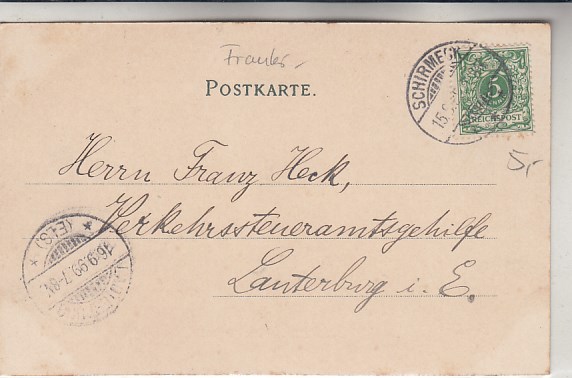 POSTKARTE.
SCHIRMECK
15.9
5
REICHSPOST
5,-
Herrn Franz Heck,
Verkehrssteueramtsgehilfe
Lauterburg i. E.
* (ELS) *
16.9.99.7-8V.